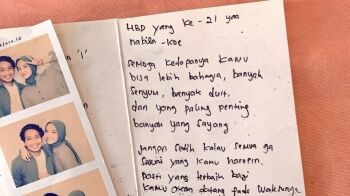 HBD yang ke-21 yaa
nabila-koe
semoga kedepanya kamu
bisa lebih bahagia, banyak
senyum, banyak duit,
dan yang paling penting
banyak yang sayang
jangan sedih kalau semua ga
sesuai yang kamu harepin.
pasti yang terbaik bagi
kamu akan datang pada waktunya.